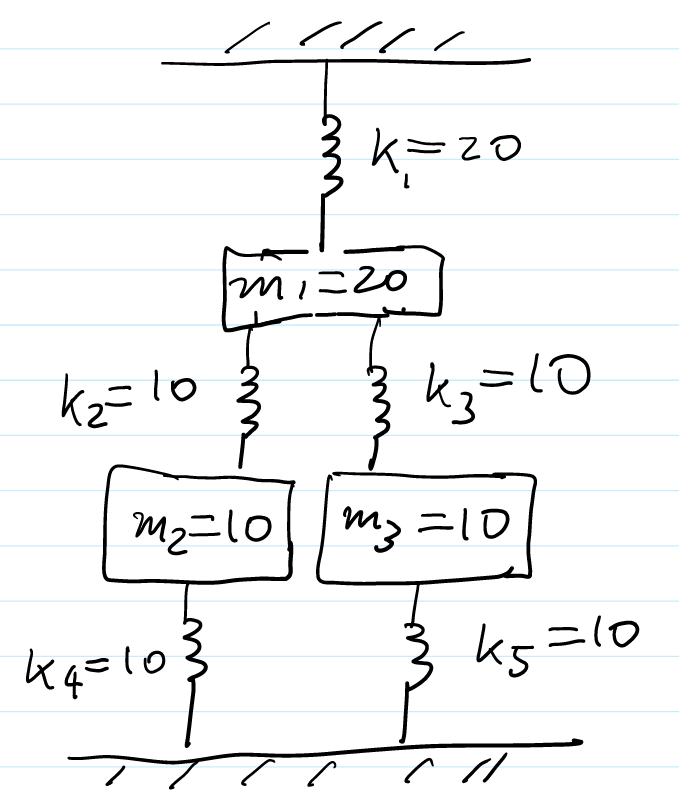 k₁=20
m₁=20
k₂=10
k₃=10
m₂=10
m₃=10
k₄=10
k₅=10